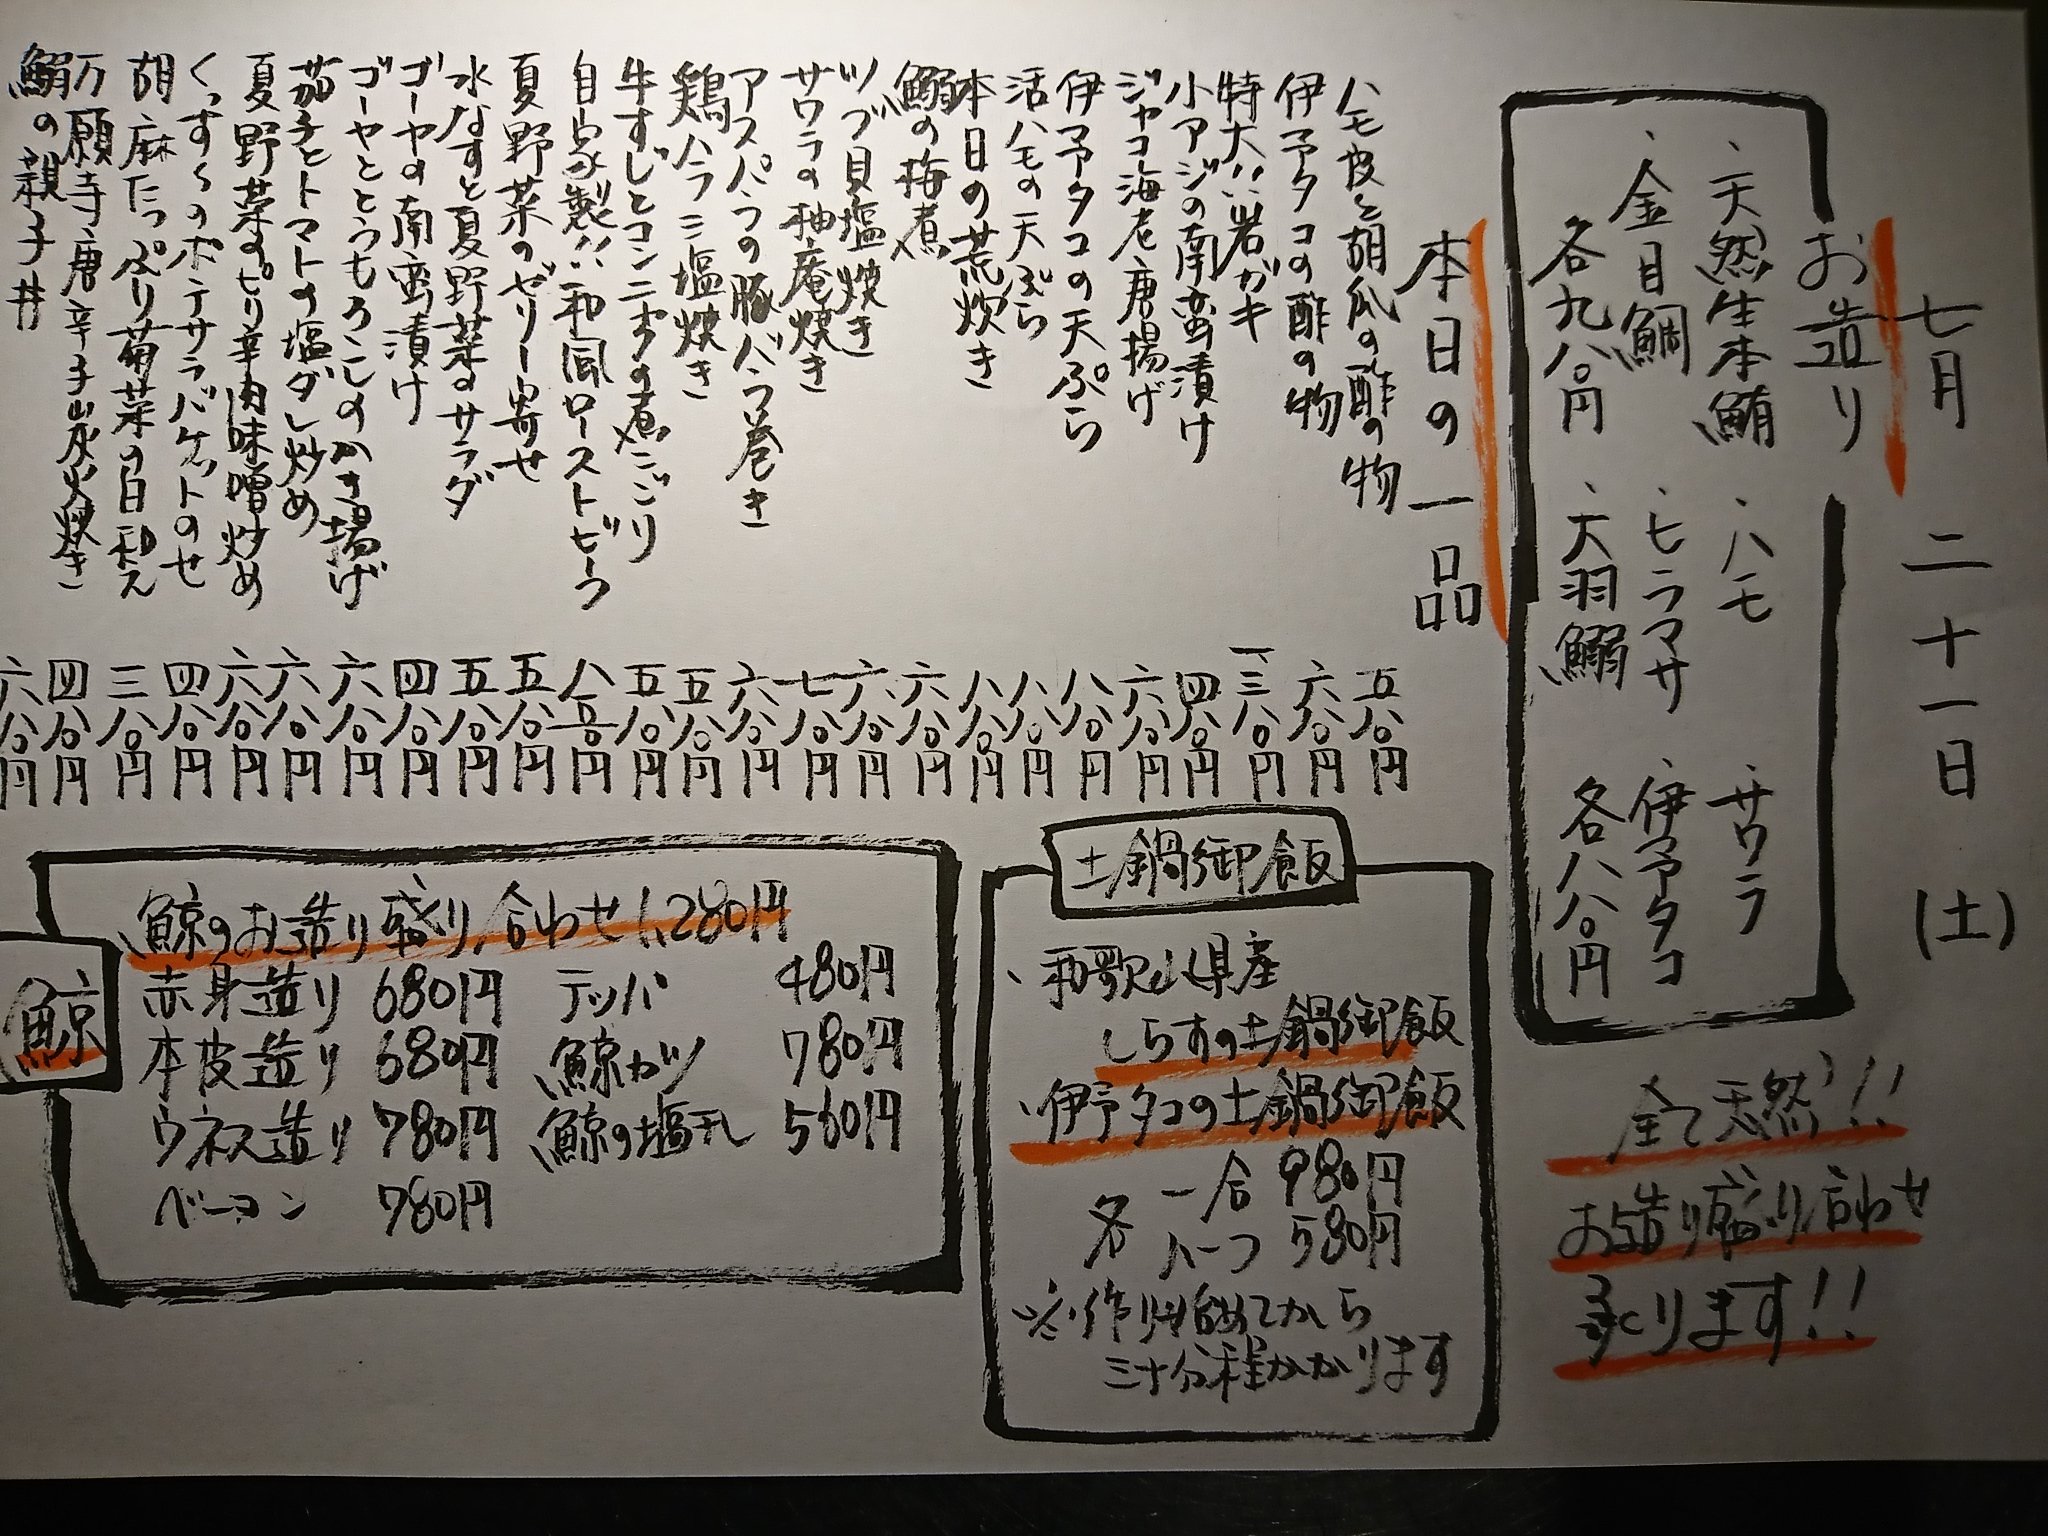 七月 二十一日 (土)
お造り
、天然生本鮪 、ハモ 、サワラ
、金目鯛 、ヒラマサ 、伊予タコ
各九八〇円 、大羽鰯 各八八〇円
全て天然!!
お造り盛り合わせ
承ります!!
本日の一品
ハモ皮と胡瓜の酢の物 五八〇円
伊予タコの酢の物 六八〇円
特大!!岩ガキ 一三八〇円
小アジの南蛮漬け 四八〇円
ジャコ海老唐揚げ 六八〇円
伊予タコの天ぷら 八八〇円
活ハモの天ぷら 八八〇円
本日の荒炊き 八八〇円
鰯の梅煮 六八〇円
ツブ貝塩焼き 六八〇円
サワラの柚庵焼き 七八〇円
アスパラの豚バラ巻き 六八〇円
鶏ハラミ塩焼き 五八〇円
牛すじとコンニャクの煮こごり 五八〇円
自家製!!和風ローストビーフ 八八〇円
夏野菜のゼリー寄せ 五八〇円
水なすと夏野菜のサラダ 五八〇円
ゴーヤの南蛮漬け 四八〇円
ゴーヤととうもろこしのかき揚げ 六八〇円
茄子とトマトの塩ダレ炒め 六八〇円
夏野菜のピリ辛肉味噌炒め 六八〇円
くんすぃのポテサラバケットのせ 四八〇円
胡麻たっぷり菊菜の白和え 三八〇円
万願寺唐辛子炭火焼き 四八〇円
鰯の親子丼 六八〇円
土鍋御飯
、和歌山県産
しらすの土鍋御飯
、伊予タコの土鍋御飯
各 一合 980円
ハーフ 580円
※作り始めてから
三十分程かかります
鯨
鯨のお造り盛り合わせ 1,280円
赤身造り 680円 テッパ 480円
本皮造り 680円 鯨カツ 780円
ウネス造り 780円 鯨の塩干し 560円
ベーコン 780円